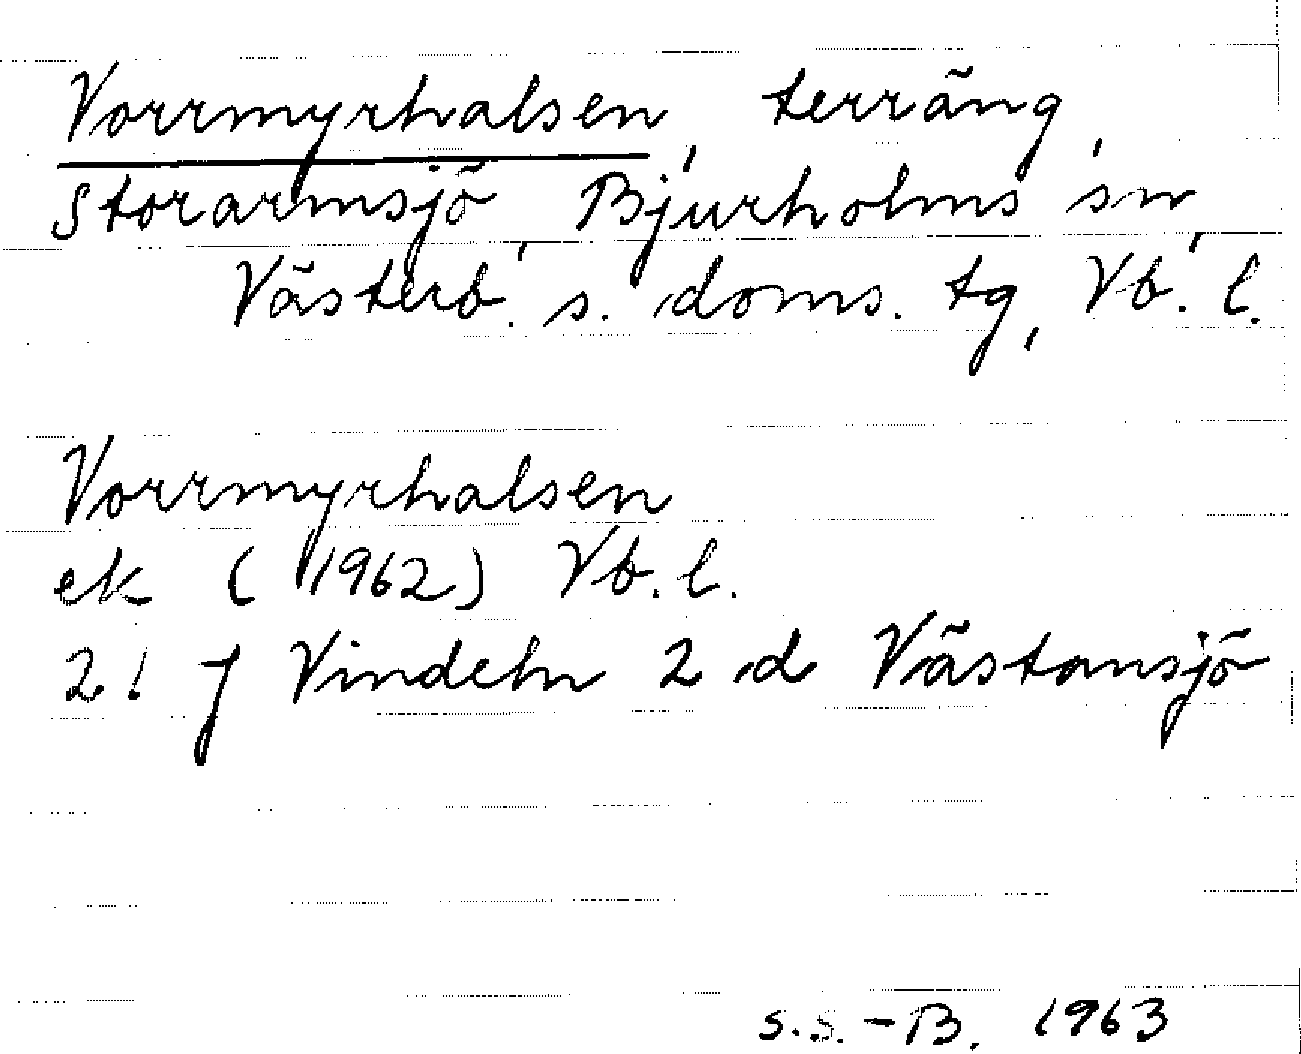 Vorrmyrhalsen, terräng,
Storarmsjö, Bjurholms sn,
Västerb. s. doms. tg, Vb. l.
Vorrmyrhalsen
ek (1962) Vb. l.
21 J Vindeln 2 d Västansjö
S.S.-B. 1963